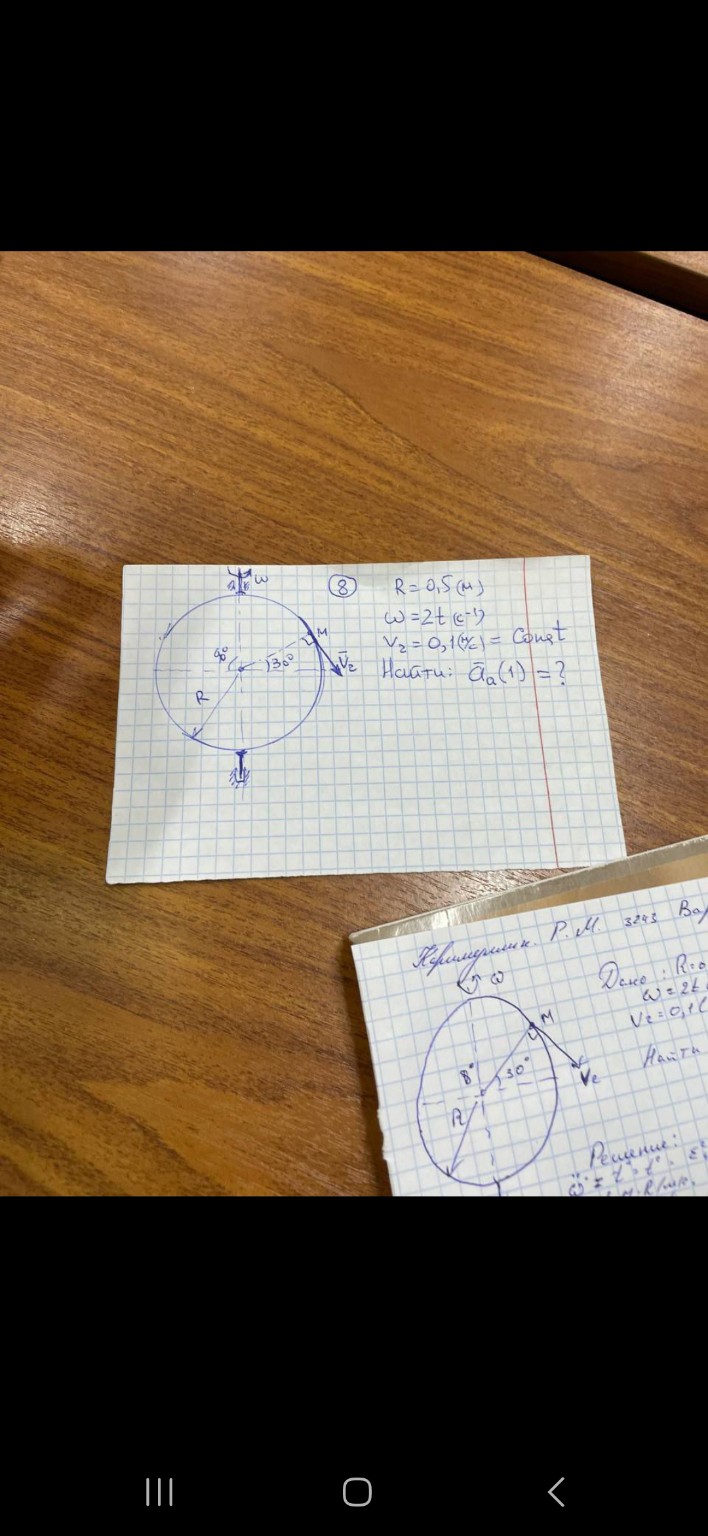 ω
8
R = 0,5 (м)
ω = 2t (c⁻¹)
Vr = 0,1 (м/с) = Const
Найти: āa(1) = ?
M
V̄r
90°
30°
R
Р. М. 3243 Вар
Дано: R=0
ω = 2t
Vr = 0,1 (
Найти
ω
M
30°
Vr
R
Решение: